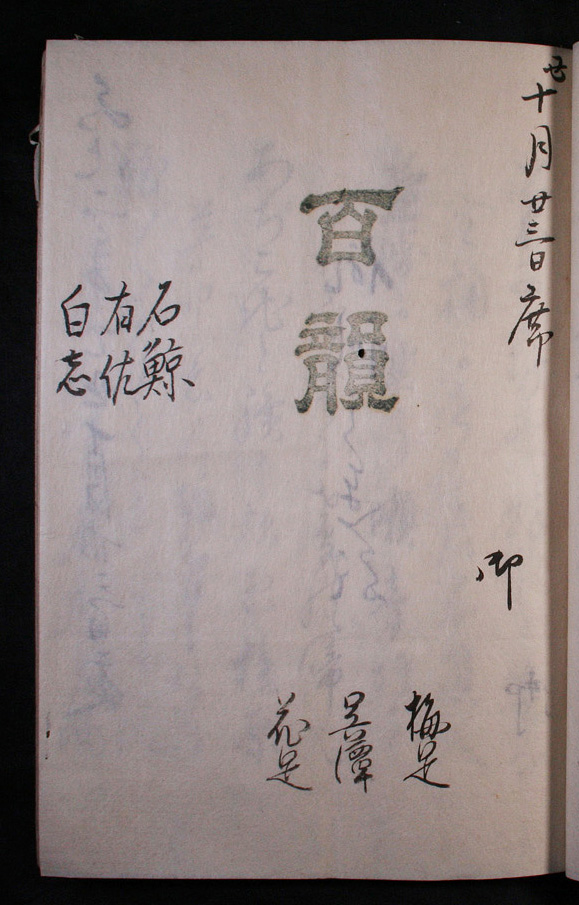 廿
十月廿三日席
御
百韻
梅足
呉潭
花足
石鯨
有佐
白志